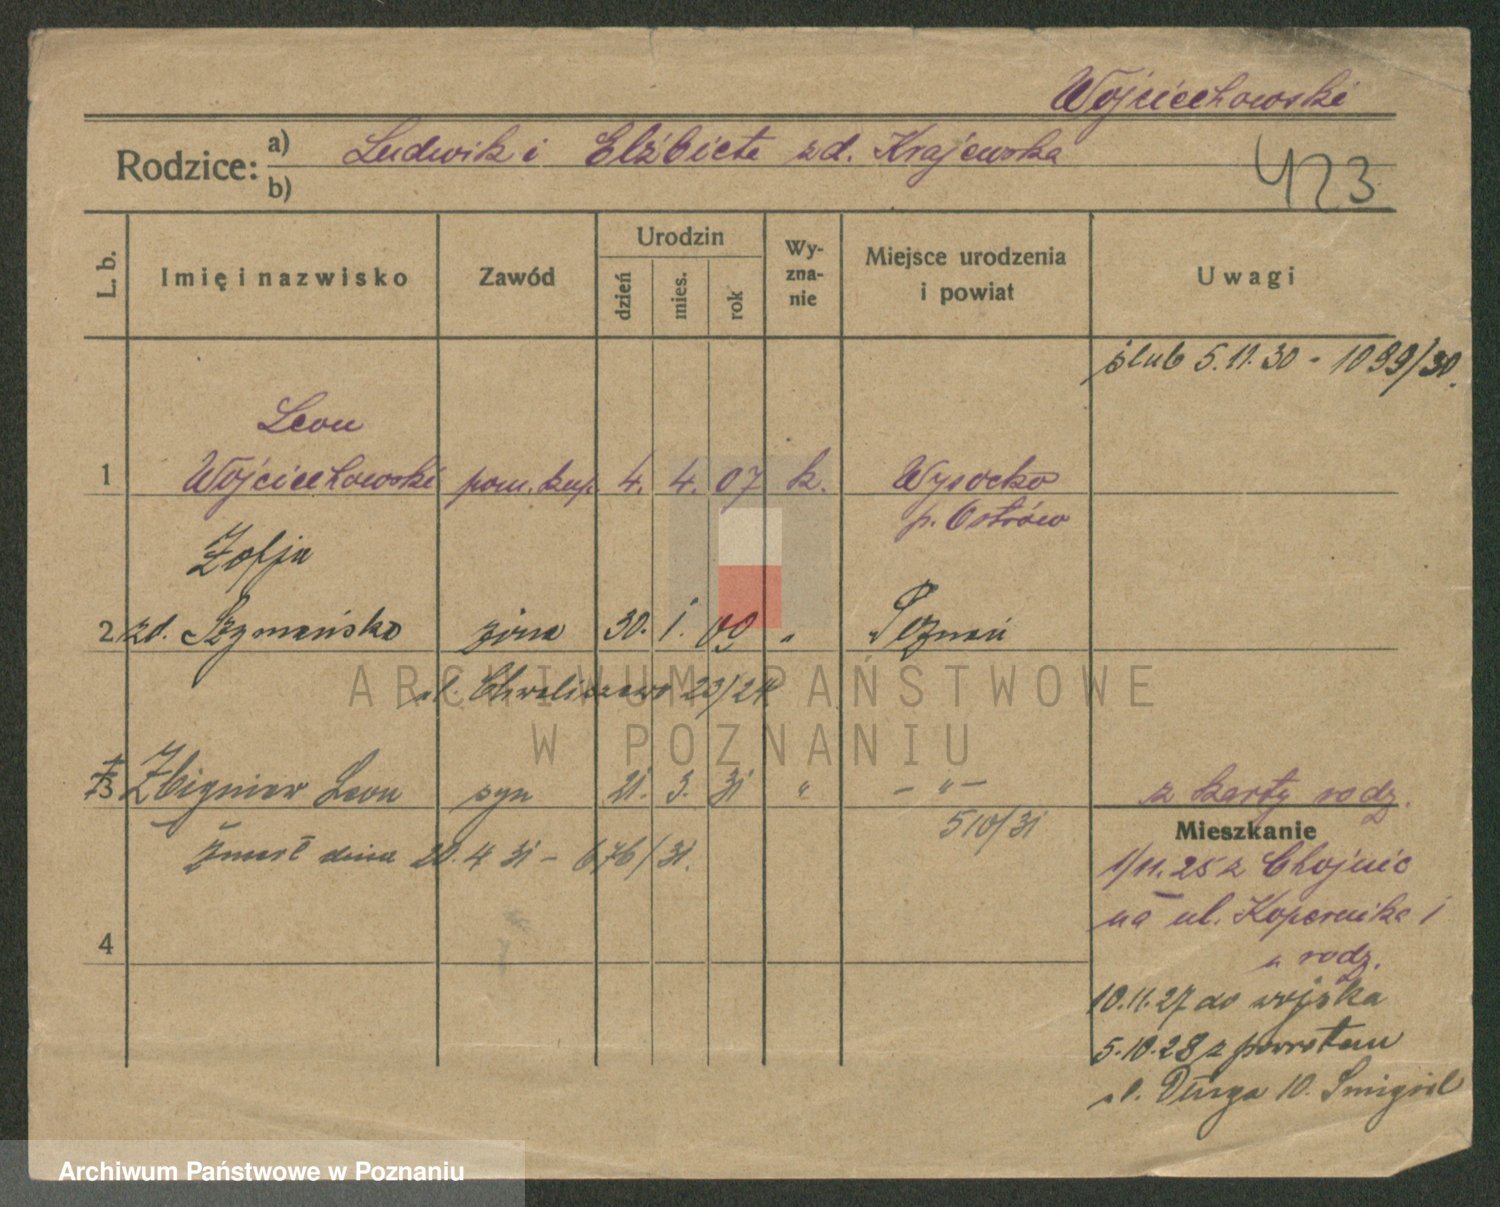 Wojciechowski
Rodzice: a) Ludwik i Elżbieta zd. Krajewska
b)
423
L. b. Imię i nazwisko Zawód Urodzin dzień mies. rok Wy-zna-nie Miejsce urodzenia i powiat Uwagi
ślub 5.11.30 - 1099/30.
Leon
1 Wojciechowski pom. kup. 4. 4. 07 k. Wysocko
p. Ostrów
Zofja
2 zd. Szymańska żona 30. 1. 09 " Poznań
ul. Chwaliszewo 23/24
3 Zbigniew Leon syn 21. 3. 31 " - " -
z karty rodz.
510/31
Mieszkanie
zmarł dnia 20.4.31 - 676/31.
1/11.25 z Chojnic
na ul. Kopernika 1
u rodz.
4
10.11.27 do wojska
5.10.28 z powrotem
ul. Długa 10. Śmigiel
ARCHIWUM PAŃSTWOWE
W POZNANIU
Archiwum Państwowe w Poznaniu